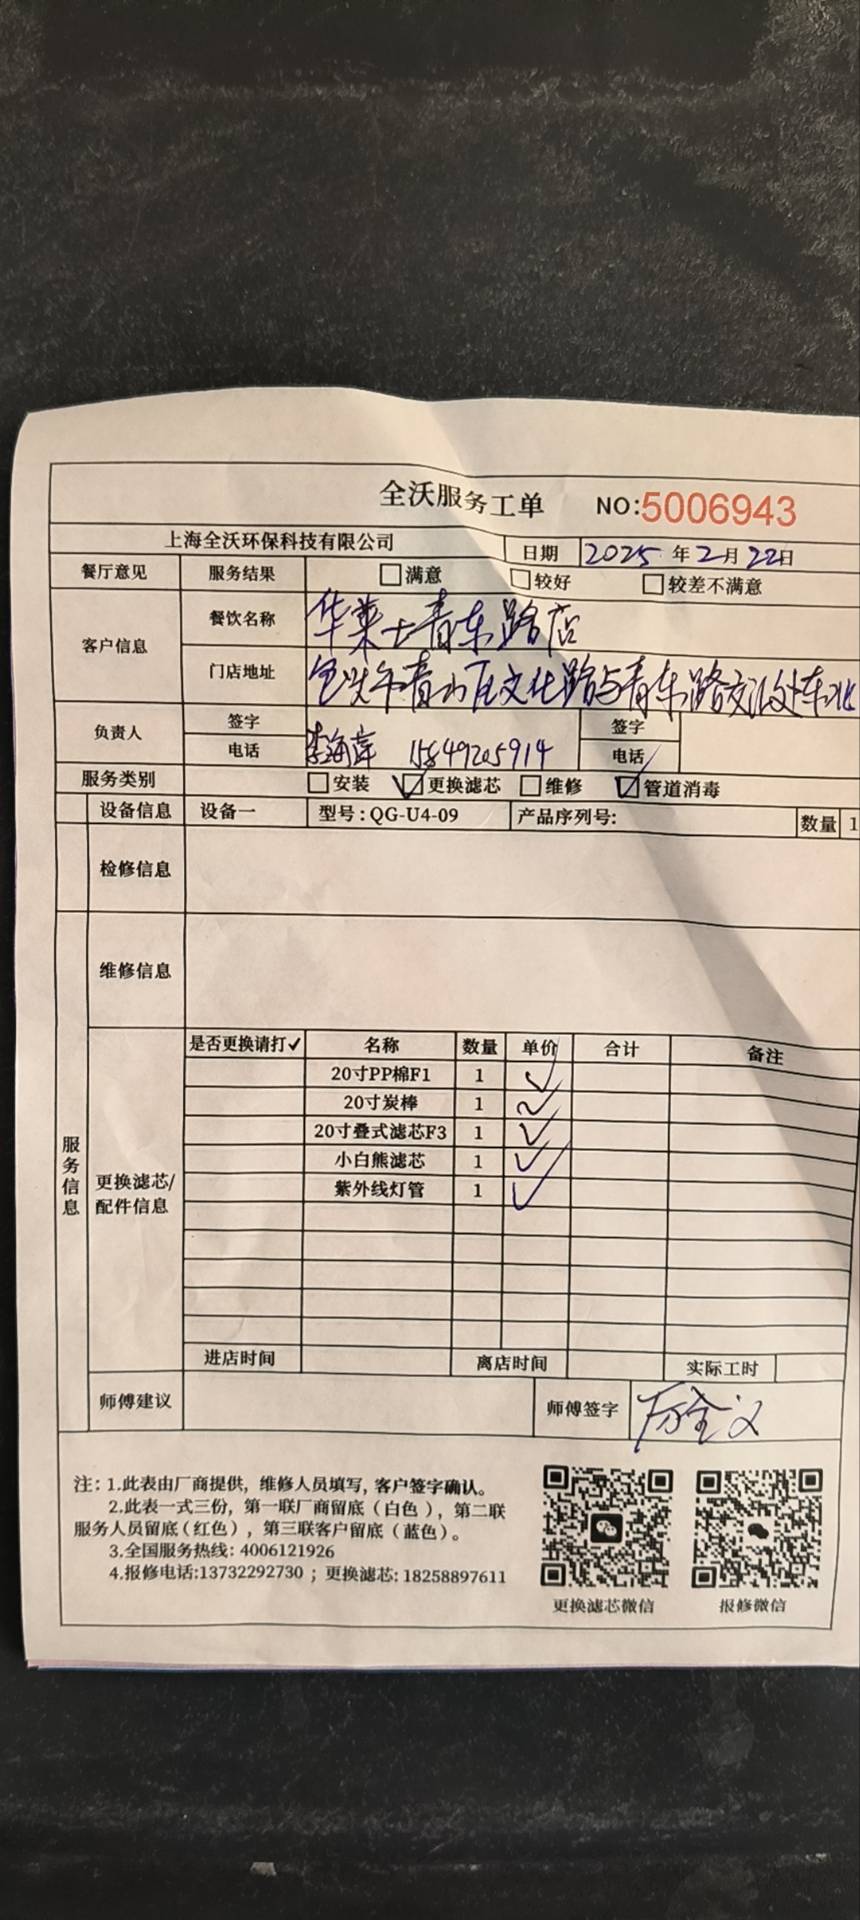 全沃服务工单 NO:5006943
上海全沃环保科技有限公司 日期 2025年2月22日
餐厅意见 服务结果 □满意 □较好 □较差不满意
客户信息 餐饮名称 华莱士青东路店
门店地址 包头市青山区文化路与青东路交汇处东北
负责人 签字 李海萍 签字
电话 15849205914 电话
服务类别 □安装 ☑更换滤芯 □维修 ☑管道消毒
设备信息 设备一 型号:QG-U4-09 产品序列号: 数量 1
检修信息
维修信息
服务信息
更换滤芯/配件信息
是否更换请打✓ 名称 数量 单价 合计 备注
20寸PP棉F1 1 ✓
20寸炭棒 1 ✓
20寸叠式滤芯F3 1 ✓
小白熊滤芯 1 ✓
紫外线灯管 1 ✓
进店时间 离店时间 实际工时
师傅建议 师傅签字
注: 1.此表由厂商提供, 维修人员填写, 客户签字确认。
2.此表一式三份, 第一联厂商留底(白色), 第二联
服务人员留底(红色), 第三联客户留底(蓝色)。
3.全国服务热线: 4006121926
4.报修电话:13732292730 ; 更换滤芯: 18258897611
更换滤芯微信 报修微信